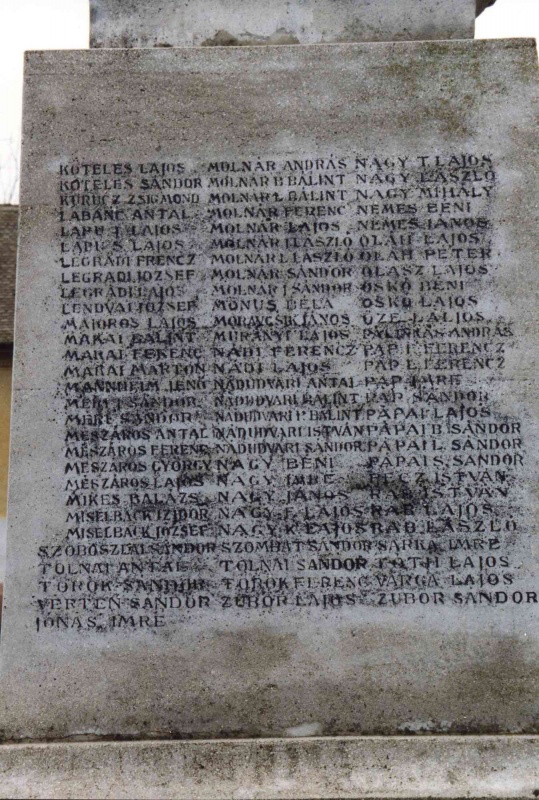 KÖTELES LAJOS MOLNÁR ANDRÁS NAGY T. LAJOS
KÖTELES SÁNDOR MOLNÁR B. BÁLINT NAGY LÁSZLÓ
KURUCZ ZSIGMOND MOLNÁR L. BÁLINT NAGY MIHÁLY
LABANC ANTAL MOLNÁR FERENC NEMES BENI
LAPU J. LAJOS MOLNÁR LAJOS NEMES JÁNOS
LAPUS LAJOS MOLNÁR J. LÁSZLÓ OLÁH LAJOS
LEGRÁDI FERENCZ MOLNÁR L. LÁSZLÓ OLÁH PÉTER
LEGRÁDI JÓZSEF MOLNÁR SÁNDOR OLASZ LAJOS
LEGRÁDI LAJOS MOLNÁR J. SÁNDOR OSKÓ BÉNI
LENDVAI JÓZSEF MÓNUS BÉLA OSKÓ LAJOS
MAJOROS LAJOS MORAVCSIK JÁNOS ŐZE L. LAJOS
MAKAI BÁLINT MURÁNYI LAJOS ANDRÁS
MARAI FERENC NÁDI FERENCZ PAP I. FERENCZ
MARAI MÁRTON NÁDI LAJOS PAP L. FERENCZ
MANNHEIM JENŐ NÁDUDVARI ANTAL PAP IMRE
SÁNDOR NÁDUDVARI BÁLINT PAP SÁNDOR
MÉRI SÁNDOR NÁDUDVARI P. BÁLINT PÁPAI LAJOS
MÉSZÁROS ANTAL NÁDUDVARI ISTVÁN PÁPAI B. SÁNDOR
MÉSZÁROS FERENC NÁDUDVARI SÁNDOR PÁPAI L. SÁNDOR
MÉSZÁROS GYÖRGY NAGY BÉNI PÁPAI S. SÁNDOR
MÉSZÁROS LAJOS NAGY IMRE PECZ ISTVÁN
MIKES BALÁZS NAGY JÁNOS RAB ISTVÁN
MISELBACK IZIDOR NAGY F. LAJOS RAB LAJOS
MISELBACK JÓZSEF NAGY K. LAJOS RÁD LÁSZLÓ
SZOBOSZLAI SÁNDOR SZOMBAT SÁNDOR SARKA IMRE
TOLNAI ANTAL TOLNAI SÁNDOR TÓTH LAJOS
TÖRÖK SÁNDOR TÖRÖK FERENC VARGA LAJOS
VERTEN SÁNDOR ZUBOR LAJOS ZUBOR SÁNDOR
JÓNÁS IMRE